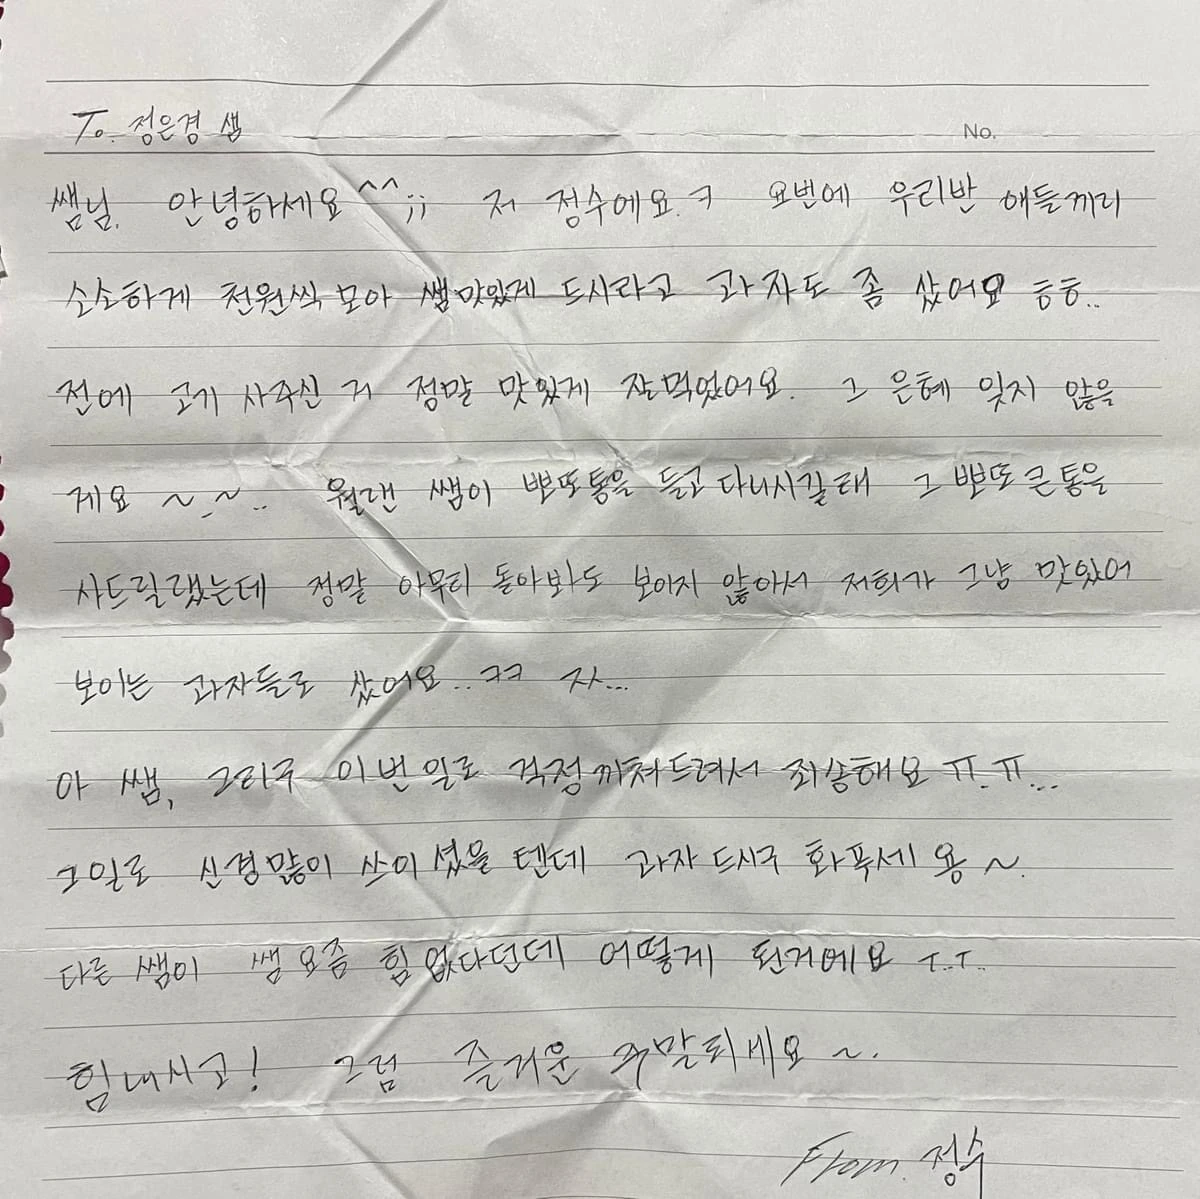 To. 정은경 샘
No.
쌤님. 안녕하세요^^;; 저 정수에요.ㅋ 요번에 우리반 애들끼리
소소하게 천원씩 모아 쌤맛있게 드시라고 과자도 좀 샀어요 ㅎㅎ..
전에 고기 사주신 거 정말 맛있게 잘먹었어요. 그 은혜 잊지 않을
게요 ~.~.. 월랜 쌤이 뽀또통을 들고다니시길래 그 뽀또큰통을
사드릴랬는데 정말 아무리 돌아봐도 보이지 않아서 저희가 그냥 맛있어
보이는 과자들로 샀어요..ㅋㅋ 자...
아 쌤, 그리구 이번일로 걱정끼쳐드려서 죄송해요 ㅠ.ㅠ...
그일로 신경많이 쓰이셨을 텐데 과자 드시구 화푸세용~.
다른 쌤이 쌤요즘 힘없다던데 어떻게 된거에요 ㅜ..ㅜ..
힘내시고! 그럼 즐거운 주말되세요~.
From. 정수